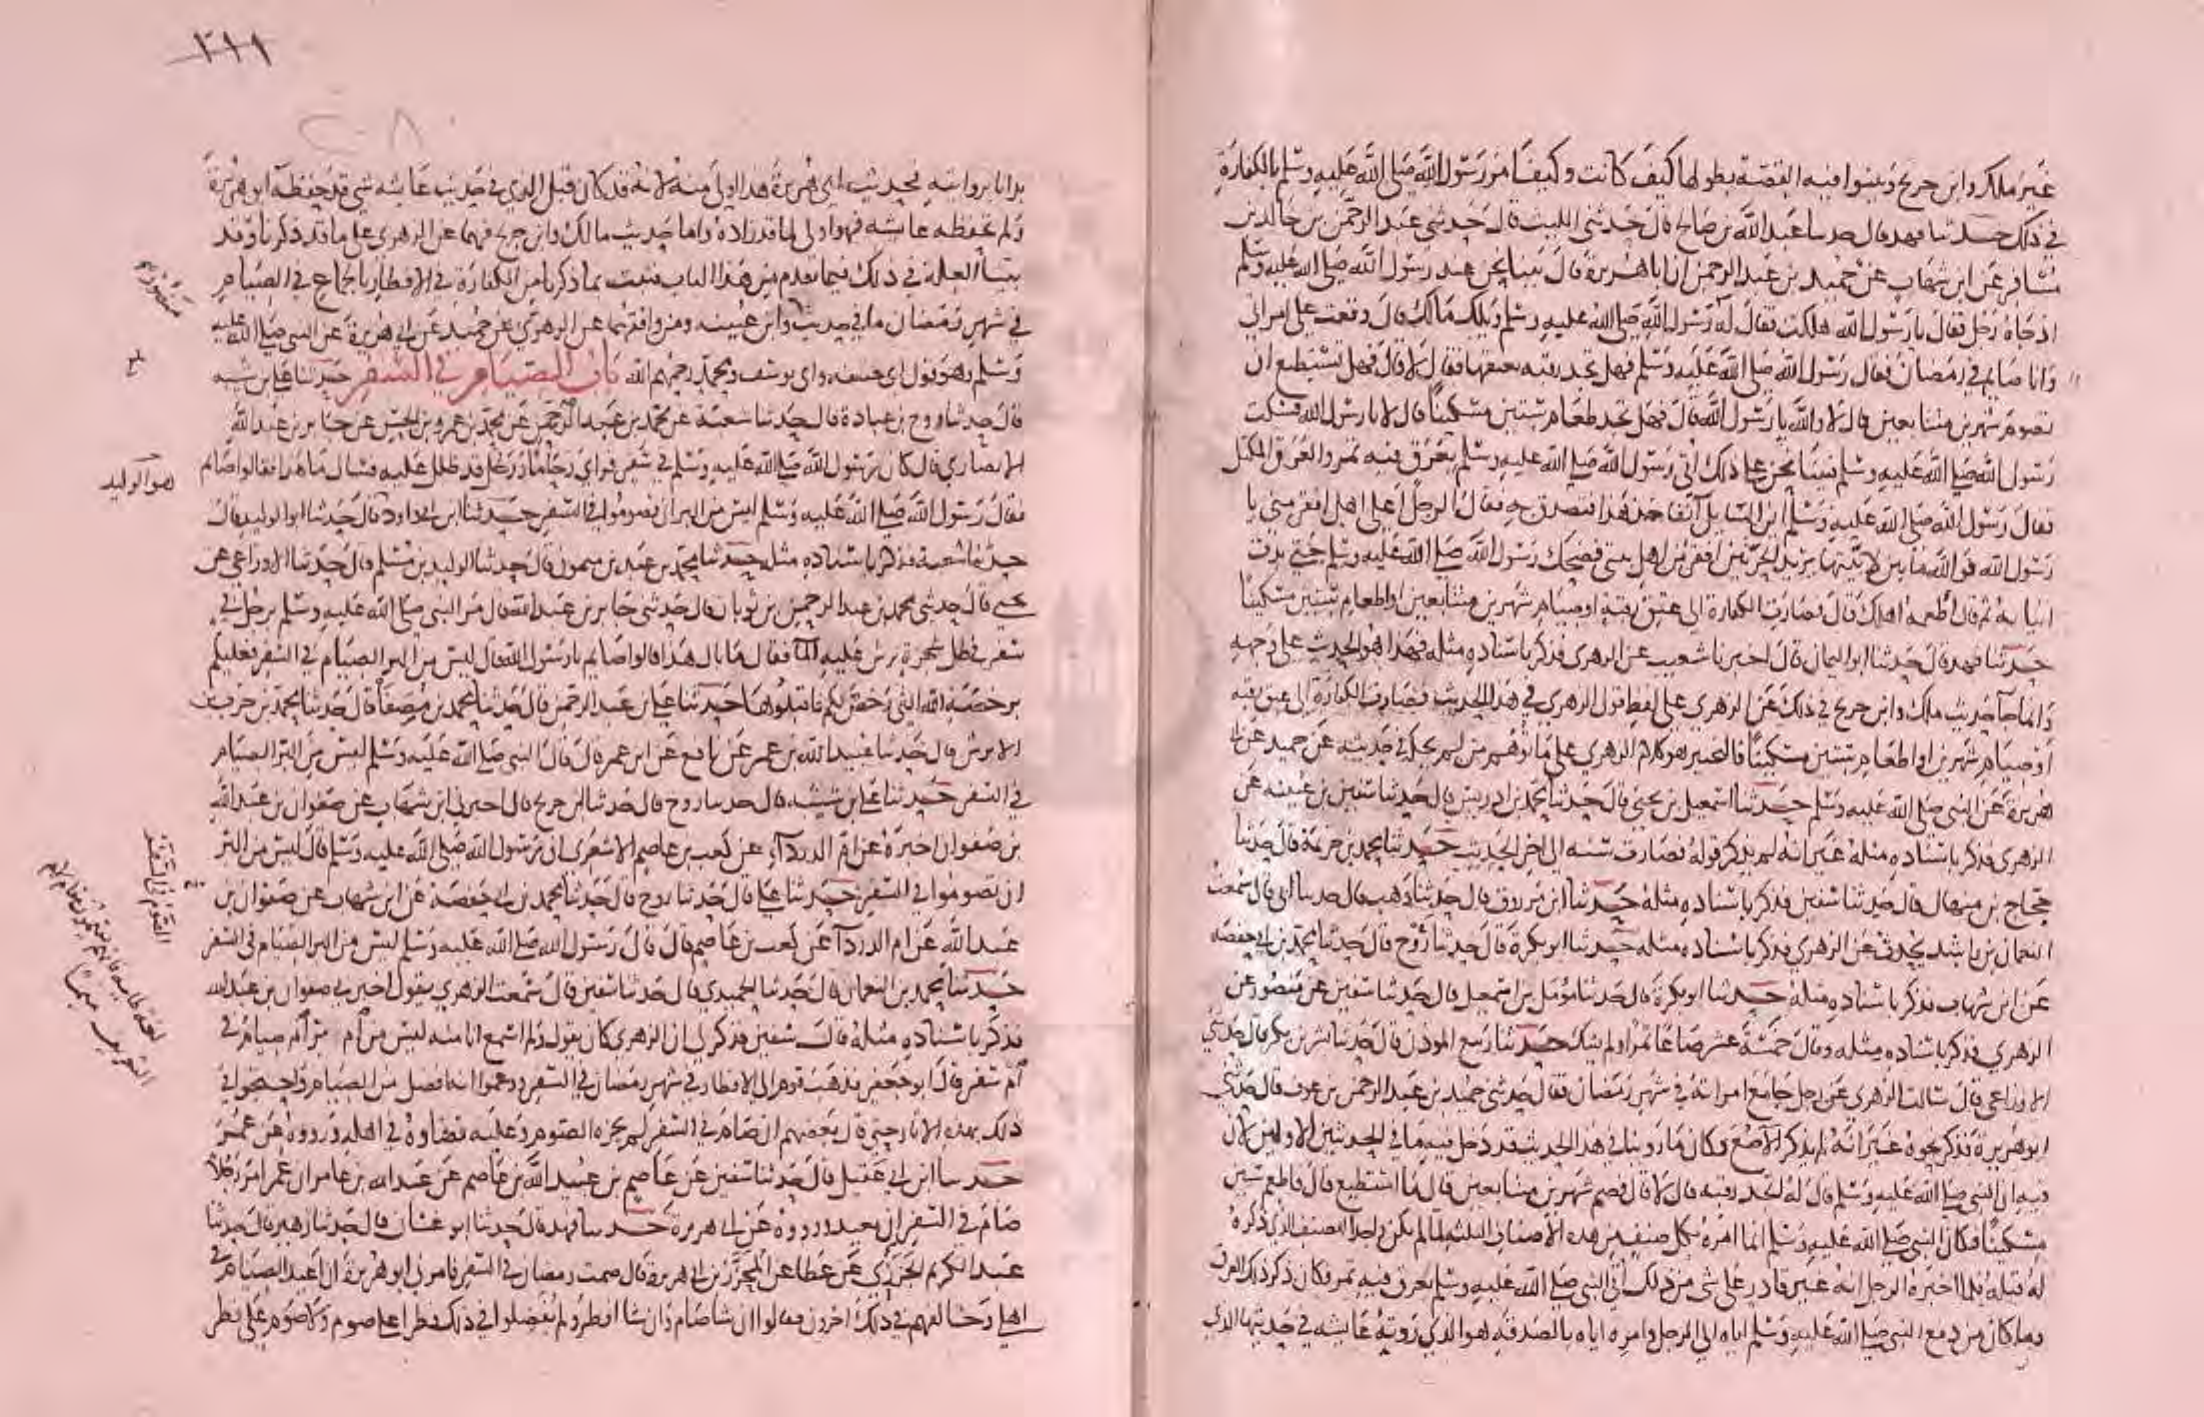 غير مالك وابن جريج وبينوا فيه القصة بطولها كيف كانت وكيف امر رسول الله صلى الله عليه وسلم بالكفارة
في ذلك حدثنا فهد قال حدثنا عبد الله بن صالح قال حدثني الليث قال حدثني عبد الرحمن بن خالد بن
مسافر عن ابن شهاب عن حميد بن عبد الرحمن ان ابا هريرة قال بينما نحن عند رسول الله صلى الله عليه وسلم
اذ جاه رجل فقال يا رسول الله هلكت فقال له رسول الله صلى الله عليه وسلم ويلك مالك قال وقعت على امراتي
وانا صايم في رمضان فقال رسول الله صلى الله عليه وسلم فهل تجد رقبة تعتقها فقال لا قال فهل تستطيع ان
تصوم شهرين متتابعين قال لا والله يا رسول الله قال فهل تجد طعام ستين مسكينا قال لا يا رسول الله فسكت
رسول الله صلى الله عليه وسلم فبينا نحن على ذلك اتي رسول الله صلى الله عليه وسلم بعرق فيه تمر والعرق المكتل
فقال رسول الله صلى الله عليه وسلم اين السايل آنفا خذ هذا فتصدق به فقال الرجل اعلى اهل افقر مني يا
رسول الله فوالله ما بين لابتيها يريد الحرتين افقر من اهل بيتي فضحك رسول الله صلى الله عليه وسلم حتى بدت
انيابه ثم قال اطعمه اهلك قال فصارت الكفارة الى عتق رقبة او صيام شهرين متتابعين او اطعام ستين مسكينا
حدثنا فهد قال حدثنا ابو اليمان قال اخبرنا شعيب عن الزهري فذكر باسناده مثله فهذا هو الحديث على وجهه
وانما جا حديث ملك وابن جريج في ذلك عن الزهري على لفظ قول الزهري في هذا الحديث فصارت الكفارة الى عتق رقبة
او صيام شهرين او اطعام ستين مسكينا فالتخيير هو كلام الزهري على ما توهم من لم يحكم في حديثه عن حميد عن ابي
هريرة عن النبي صلى الله عليه وسلم حدثنا اسمعيل بن يحيى قال حدثنا محمد بن ادريس قال حدثنا سفين بن عيينه عن
الزهري فذكر باسناده مثله غير انه لم يذكر قوله فصارت سنه الى اخر الحديث حدثنا محمد بن خزيمة قال حدثنا
حجاج بن منهال قال حدثنا سفين فذكر باسناده مثله حدثنا ابن مرزوق قال حدثنا وهب قال حدثنا ابي قال سمعت
النعمان بن راشد يحدث عن الزهري فذكر باسناده مثله حدثنا ابو بكرة قال حدثنا روح قال حدثنا محمد بن ابي حفصه
عن ابن شهاب فذكر باسناده مثله حدثنا ابو بكرة قال حدثنا مؤمل بن اسمعيل قال حدثنا سفين عن منصور عن
الزهري فذكر باسناده مثله وقال خمسة عشر صاعا تمرا ولم يشك حدثنا ربيع المؤذن قال حدثنا بشر بن بكر قال حدثني
الاوزاعي قال سالت الزهري عن رجل جامع امراته في شهر رمضان فقال حدثني حميد بن عبد الرحمن بن عوف قال حدثني
ابو هريرة فذكر نحوه غير انه لم يذكر الاصع وكان ما روينا في هذا الحديث قد دخل فيه ما في الحديثين الاولين لان
فيه ان النبي صلى الله عليه وسلم قال له اتجد رقبه قال لا قال فصم شهرين متتابعين قال ما استطيع قال فاطعم ستين
مسكينا فكان النبي صلى الله عليه وسلم انما امره بكل صنف من هذه الاصناف الثلثه لما لم يكن واجدا للصنف الذي ذكره
له قبله فلما اخبره الرجل انه غير قادر على شي من ذلك اتي النبي صلى الله عليه وسلم بعرق فيه تمر فكان ذكر ذلك العرق
وما كان من دفع النبي صلى الله عليه وسلم اياه الى الرجل وامره اياه بالصدقة هو الذي روته عايشه في حديثها الذي
٢١١
بدانا بروايته فحديث ابي هريرة هذا اولى منه لانه قد كان قبل الذي في حديث عايشه شي قد حفظه ابو هريرة
ولم تحفظه عايشه فهو اولى لما قد زاده واما حديث مالك وابن جريج فهما عن الزهري على ما قد ذكرنا وقد
بينا العلة في ذلك فيما تقدم من هذا الباب فثبت بما ذكرنا من الكفارة في الافطار بالجماع في الصيام
في شهر رمضان ما في حديث وابن عيينه ومن وافقهما عن الزهري عن حميد عن ابي هريرة عن النبي صلى الله عليه
وسلم وهو قول ابي حنيفه وابي يوسف ومحمد رحمهم الله باب الصيام في السفر حدثنا علي بن شيبه
قال حدثنا روح بن عبادة قال حدثنا شعبة عن محمد بن عبد الرحمن عن محمد بن عمرو بن الحسن عن جابر بن عبد الله
الانصاري قال كان رسول الله صلى الله عليه وسلم في سفر فراي زحاما ورجل قد ظلل عليه فسال ما هذا فقالوا صايم
فقال رسول الله صلى الله عليه وسلم ليس من البر ان تصوموا في السفر حدثنا ابن ابي داود قال حدثنا ابو الوليد قال
حدثنا شعبة فذكر باسناده مثله حدثنا محمد بن عبد الله بن ميمون قال حدثنا الوليد بن مسلم قال حدثنا الاوزاعي عن
يحيى قال حدثني محمد بن عبد الرحمن بن ثوبان قال حدثني جابر بن عبد الله قال مر النبي صلى الله عليه وسلم برجل في
سفر في ظل شجرة يرش عليه الما فقال ما بال هذا قالوا صايم يا رسول الله قال ليس من البر الصيام في السفر فعليكم
برخصة الله التي رخص لكم فاقبلوها حدثنا علي بن عبد الرحمن قال حدثنا محمد بن مصفا قال حدثنا محمد بن حرب
الابرش قال حدثنا عبيد الله بن عمر عن نافع عن ابن عمر قال قال النبي صلى الله عليه وسلم ليس من البر الصيام
في السفر حدثنا علي بن شيبه قال حدثنا روح قال حدثنا ابن جريج قال اخبرني ابن شهاب عن صفوان بن عبد الله
بن صفوان اخبره عن ام الدرداء عن كعب بن عاصم الاشعري ان رسول الله صلى الله عليه وسلم قال ليس من البر
ان تصوموا في السفر حدثنا علي قال حدثنا روح قال حدثنا محمد بن ابي حفصة عن ابن شهاب عن صفوان بن
عبد الله عن ام الدرداء عن كعب بن عاصم قال قال رسول الله صلى الله عليه وسلم ليس من البر الصيام في السفر
حدثنا محمد بن النعمان قال حدثنا الحميدي قال حدثنا سفين قال سمعت الزهري يقول اخبرني صفوان بن عبد الله
فذكر باسناده مثله قال سفين فذكر لي ان الزهري كان يقول ولم اسمع انا منه ليس من ام بر ام صيام في
ام سفر قال ابو جعفر فذهب قوم الى الافطار في شهر رمضان في السفر وزعموا انه افضل من الصيام واحتجوا في
ذلك بهذه الاثار حتى قال بعضهم ان صام في السفر لم يجزه الصوم وعليه قضاؤه في اهله ورووه عن عمر
حدثنا ابن ابي عقيل قال حدثنا سفين عن عاصم بن عبيد الله بن عاصم عن عبد الله بن عامر ان عمر امر رجلا
صام في السفر ان يعيد ورووه عن ابي هريرة حدثنا فهد قال حدثنا ابو غسان قال حدثنا زهير قال حدثنا
عبد الكريم الجزري عن عطا عن المحرر بن ابي هريرة قال صمت رمضان في السفر فامرني ابو هريرة ان اعيد الصيام في
اهلي وخالفهم في ذلك اخرون فقالوا ان شا صام وان شا افطر ولم يفضلوا في ذلك فطرا على صوم ولا صوم على فطر
منصور
هو الوليد